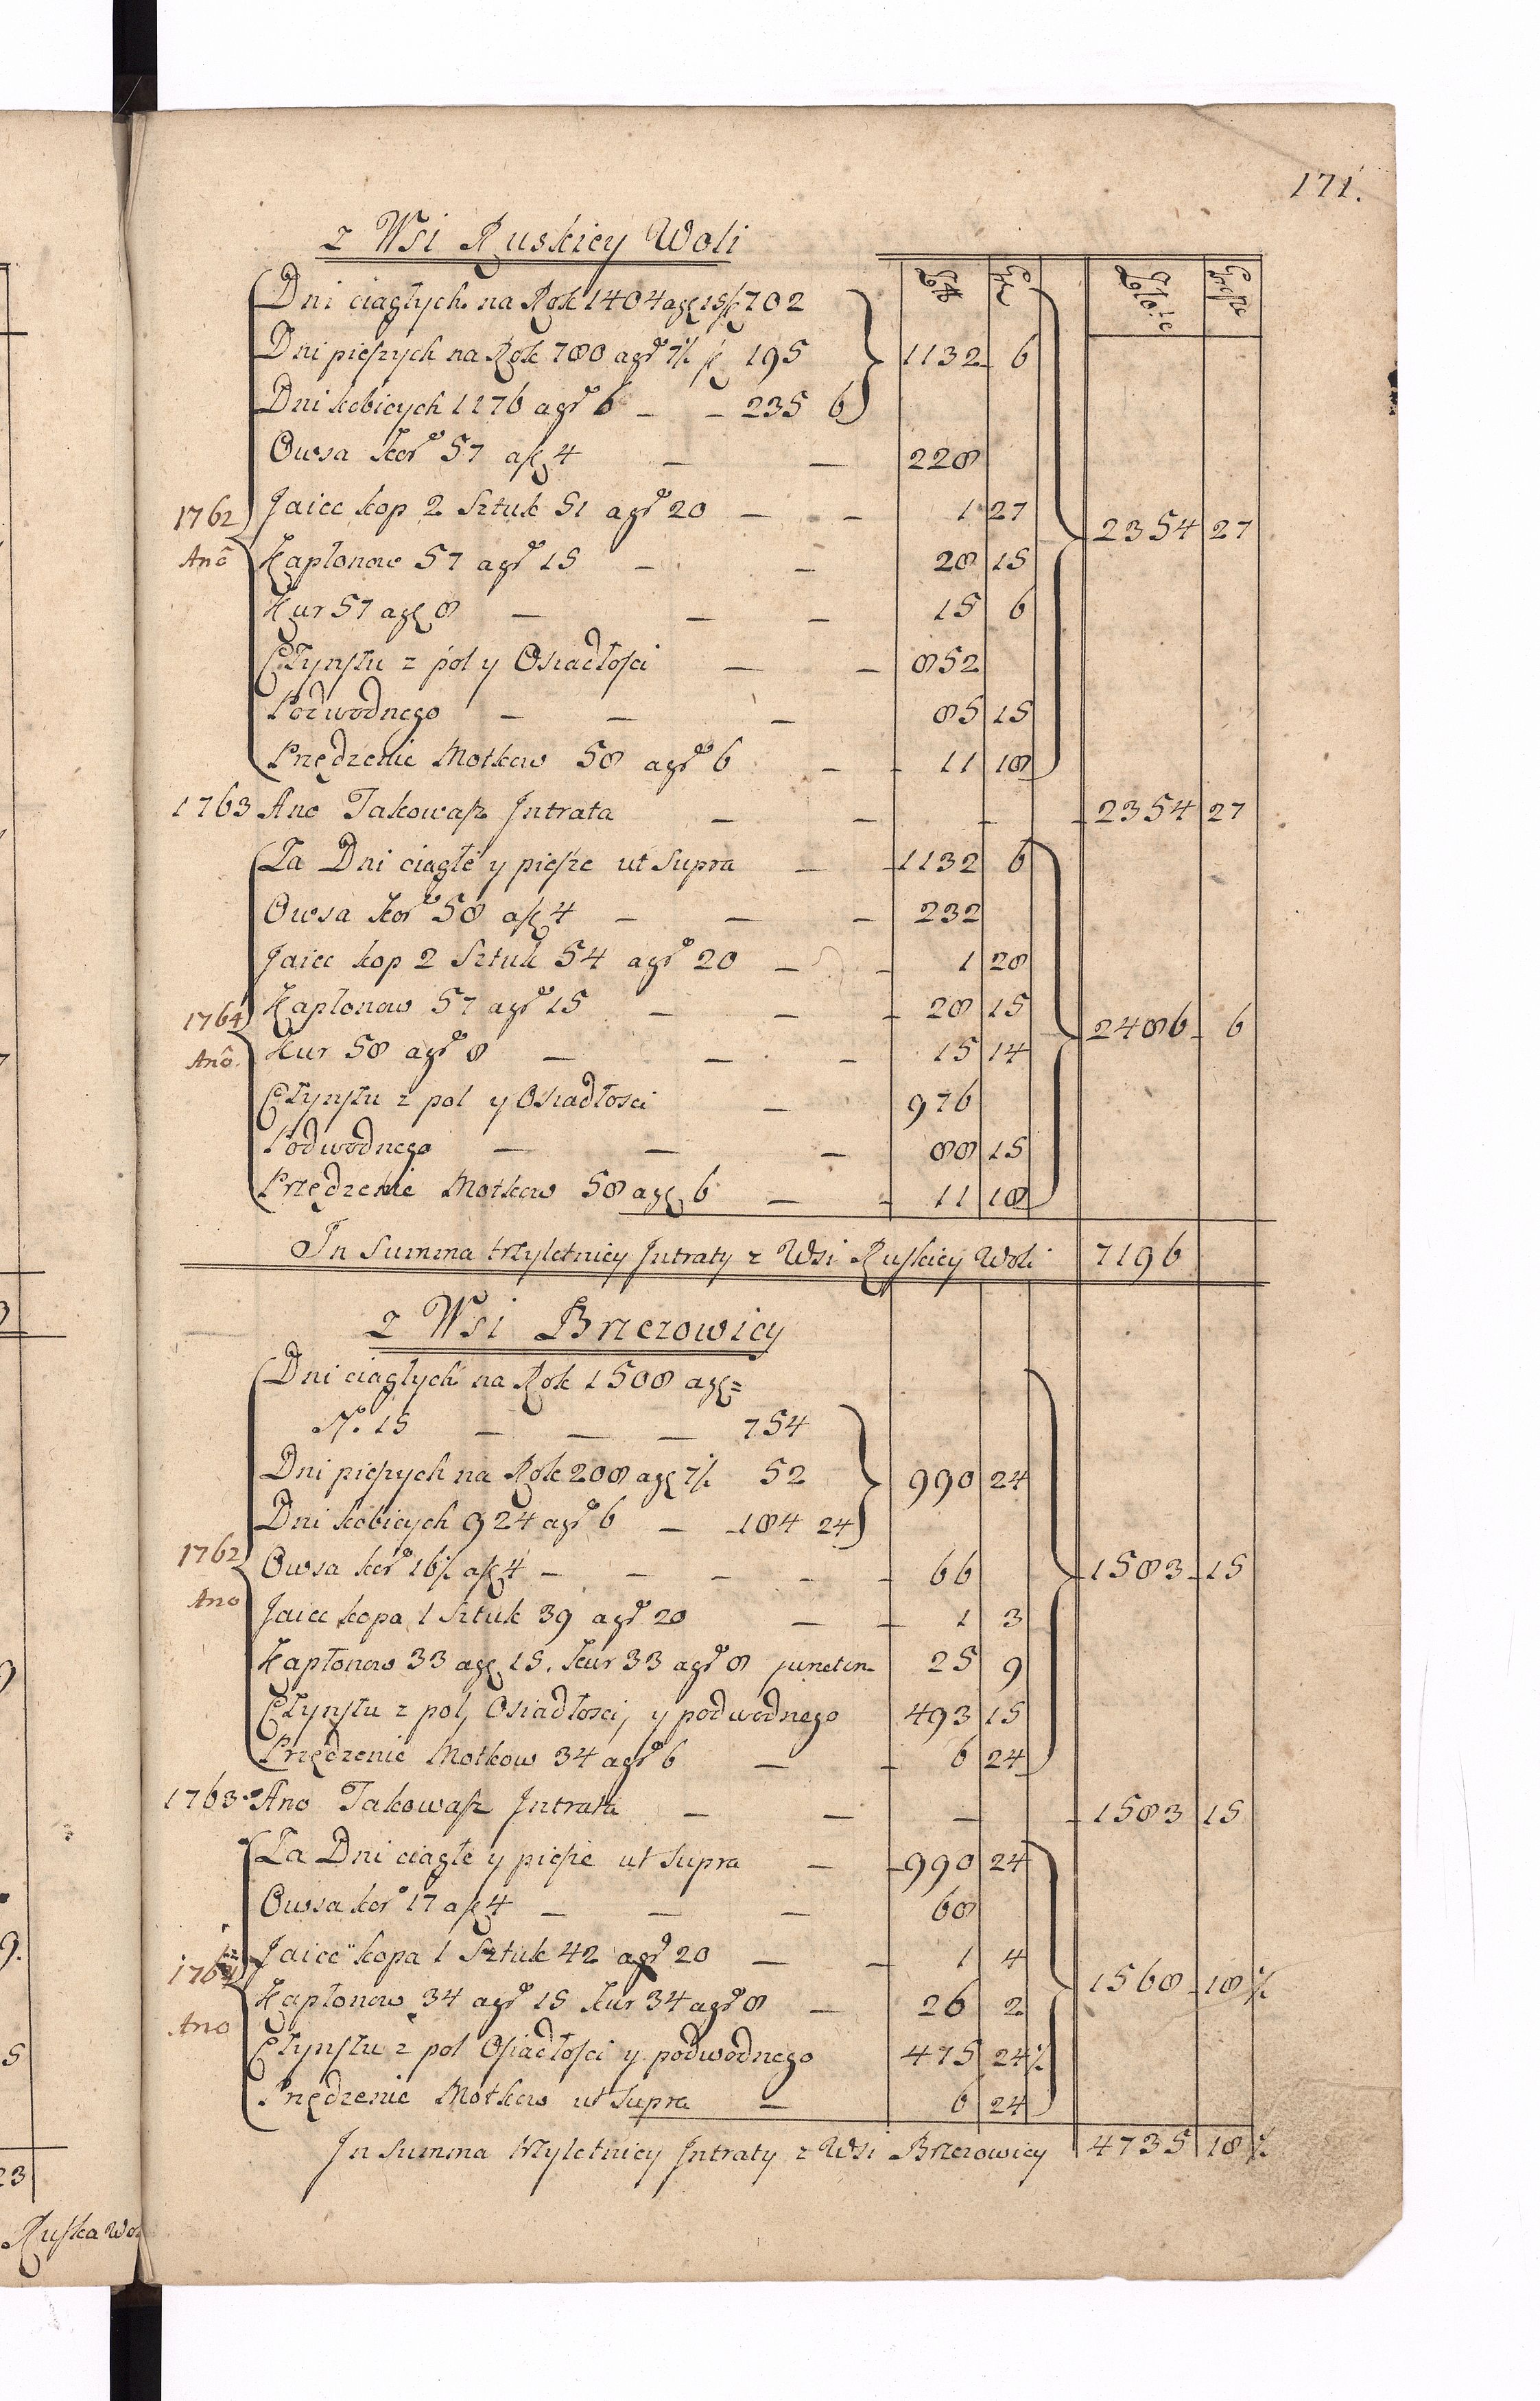 171.
z Wsi Ruskiey Woli
Złłt Gr Złote Grosze
Dni ciągłych na Rok 1404 a gr 15 f 702
Dni pieszych na Rok 780 a grō 7½ f 195 1132 6
Dni kobicych 1176 a grō 6 — — 235 6
Owsa korō 57 a f 4 — — 228
Jaiec kop 2 Sztuk 51 a grō 20 — — 1 27
1762 2354 27
Anō Kapłonow 57 a grō 15 — — 28 15
Kur 57 a gr 8 — — — 15 6
Czynszu z pol y Osiadłosci — — 852
Podwodnego — — — 85 15
Przędzenie Motkow 58 a grō 6 — — 11 18
1763 Ano Takowasz Jntrata — — — — 2354 27
Za Dni ciągłe y piesze ut Supra — — 1132 6
Owsa korō 58 a f 4 — — — 232
Jaiec kop 2 Sztuk 54 a grō 20 — — 1 28
1764 Kapłonow 57 a grō 15 — — — 28 15 2486 6
Anō. Kur 58 a grō 8 — — — 15 14
Czynszu z pol y Osiadłosci — 976
Podwodnego — — — 88 15
Przędzenie Motkow 58 a gr 6 — — 11 18
In Summa trzyletniey Jntraty z Wsi Ruskiey Woli 7196
z Wsi Brzezowicy
Dni ciągłych na Rok 1508 a gr=
Nō 15 — — — 754
Dni pieszych na Rok 208 a gr 7½ 52 990 24
Dni kobicych 924 a grō 6 — 184 24
1762 Owsa korō 16½ a f 4 — — — — — 66 1583 15
Ano Jaiec kopa 1 Sztuk 39 a grō 20 — — 1 3
Kapłonow 33 a gr 15. Kur 33 a grō 8 junctim 25 9
Czynszu z pol, Osiadłosci, y podwodnego 493 15
Przędzenie Motkow 34 a grō 6 — — 6 24
1763 Ano Takowasz Jntrata — — — — 1583 15
Za Dni ciągłe y piesze ut Supra — — 990 24
Owsa korō 17 a f 4 — — — 68
Jaiec kopa 1 Sztuk 42 a grō 20 — — 1 4
1764 1568 18½
Kapłonow 34 a grō 15 Kur 34 a grō 8 — 26 2
Ano
Czynszu z pol Osiadłosci y podwodnego 475 24½
Przędzenie Motkow ut Supra — 6 24
Jn Summa trzyletniey Jntraty z Wsi Brzezowicy 4735 18½
23
Ruska Wo